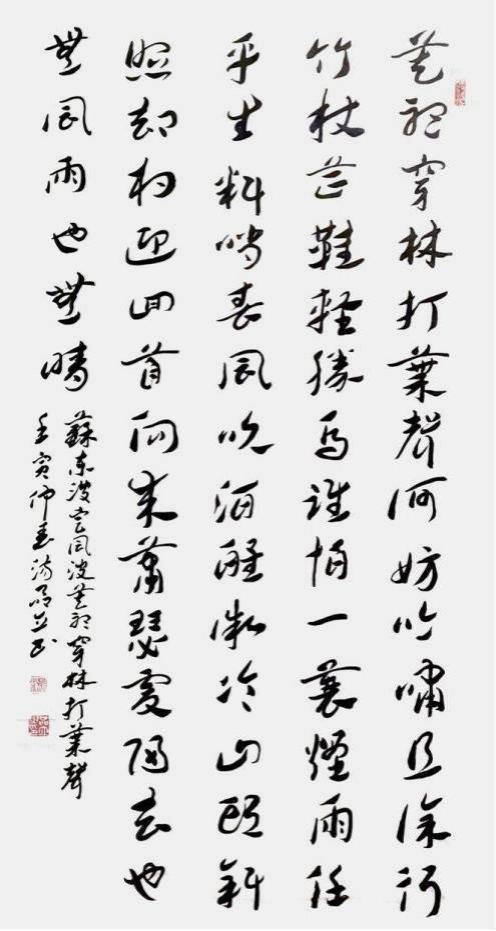 莫聽穿林打葉聲何妨吟嘯且徐行
竹杖芒鞋輕勝馬誰怕一蓑煙雨任
平生料峭春風吹酒醒微冷山頭斜
照却相迎回首向來蕭瑟處歸去也
無風雨也無晴
蘇東坡定風波莫聽穿林打葉聲
壬寅仲春湯書